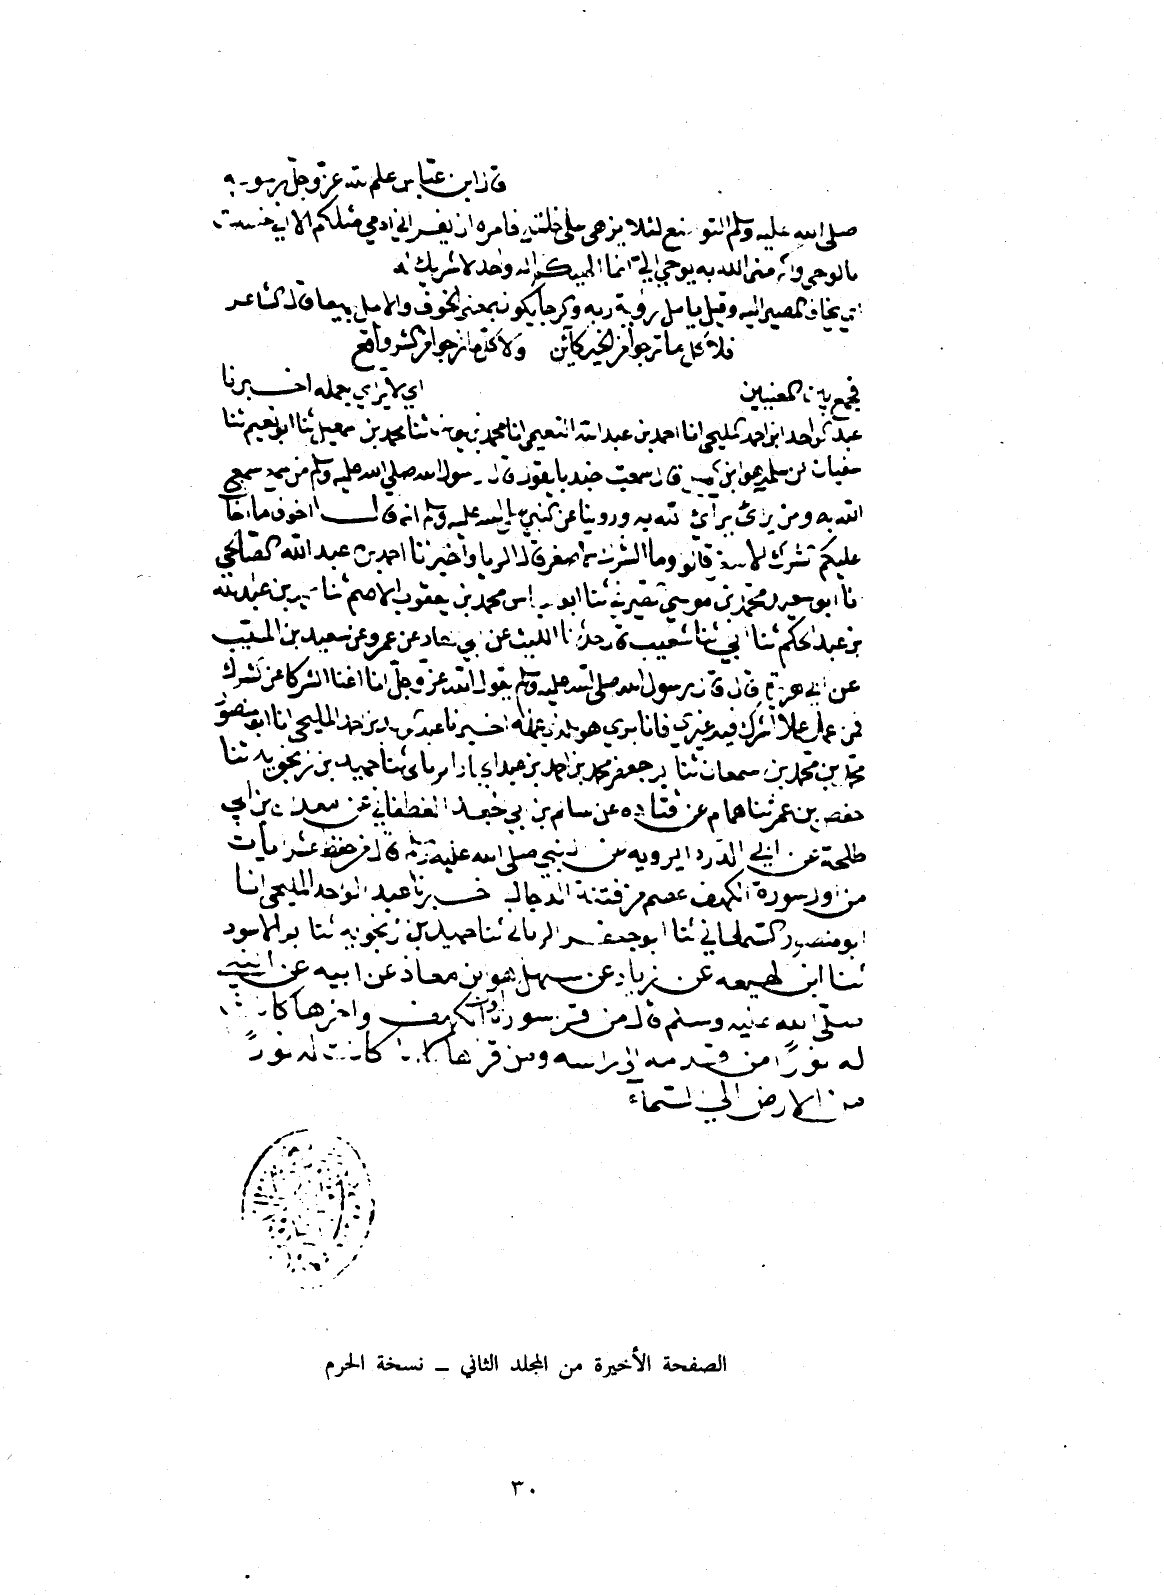 قال ابن عباس علم الله عز وجل رسوله
صلى الله عليه وسلم التواضع لئلا يزهى على خلقه فامره ان يقر اني ادمي مثلكم الا اني خصصت
بالوحي واكرمني الله به يوحى الي انما الهكم اله واحد لا شريك له
اي يخاف المصير اليه وقيل يامل رؤية ربه والرجا يكون بمعنى الخوف والامل جميعا قال الشاعر
فلا كل ما ترجوا من الخير كائن ولا كل ما ترجوا من الشر واقع
فجمع بين المعنيين اي لا يرائي بعمله اخبرنا
عبد الواحد ابن احمد المليحي انا احمد بن عبد الله النعيمي انا محمد بن يوسف ثنا محمد بن اسمعيل ثنا ابو نعيم ثنا
سفيان عن سلمة هو ابن كهيل قال سمعت جندبا يقول قال رسول الله صلى الله عليه وسلم من سمع سمع
الله به ومن يرائ يرائ الله به وروينا عن النبي صلى الله عليه وسلم انه قال اخوف ما اخاف
عليكم الشرك الاصغر قالوا وما الشرك الاصغر قال الريا واخبرنا احمد بن عبد الله الصالحي
انا ابو سعيد محمد بن موسى الصيرفي ثنا ابو العباس محمد بن يعقوب الاصم ثنا محمد بن عبد الله
بن عبد الحكم ثنا ابي ثنا شعيب قال حدثنا الليث عن ابي الهاد عن عمرو عن سعيد بن المسيب
عن ابي هريرة قال قال رسول الله صلى الله عليه وسلم يقول الله عز وجل انا اغنا الشركا عن الشرك
فمن عمل عملا اشرك فيه غيري فانا بري هو للذي عمله اخبرنا عبد الواحد بن احمد المليحي انا ابو منصور
محمد بن محمد بن سمعان ثنا ابو جعفر محمد بن احمد بن عبد الجبار الرياني ثنا حميد بن زنجويه ثنا
حفص بن عمر ثنا همام عن قتاده عن سالم بن ابي الجعد الغطفاني عن معدان بن ابي
طلحة عن ابي الدردا يرويه عن النبي صلى الله عليه وسلم قال من حفظ عشر ايات
من اول سورة الكهف عصم من فتنة الدجال اخبرنا عبد الواحد المليحي انا
ابو منصور السمعاني ثنا ابو جعفر الرياني ثنا حميد بن زنجويه ثنا ابو الاسود
ثنا ابن لهيعه عن زياد عن سهل هو بن معاذ عن ابيه عن النبي
صلى الله عليه وسلم قال من قرا اول سورة الكهف واخرها كانت
له نورا من قدمه الى راسه ومن قراها كلها كانت له نورا
من الارض الى السماء
الصفحة الأخيرة من المجلد الثاني – نسخة الحرم
٣٠